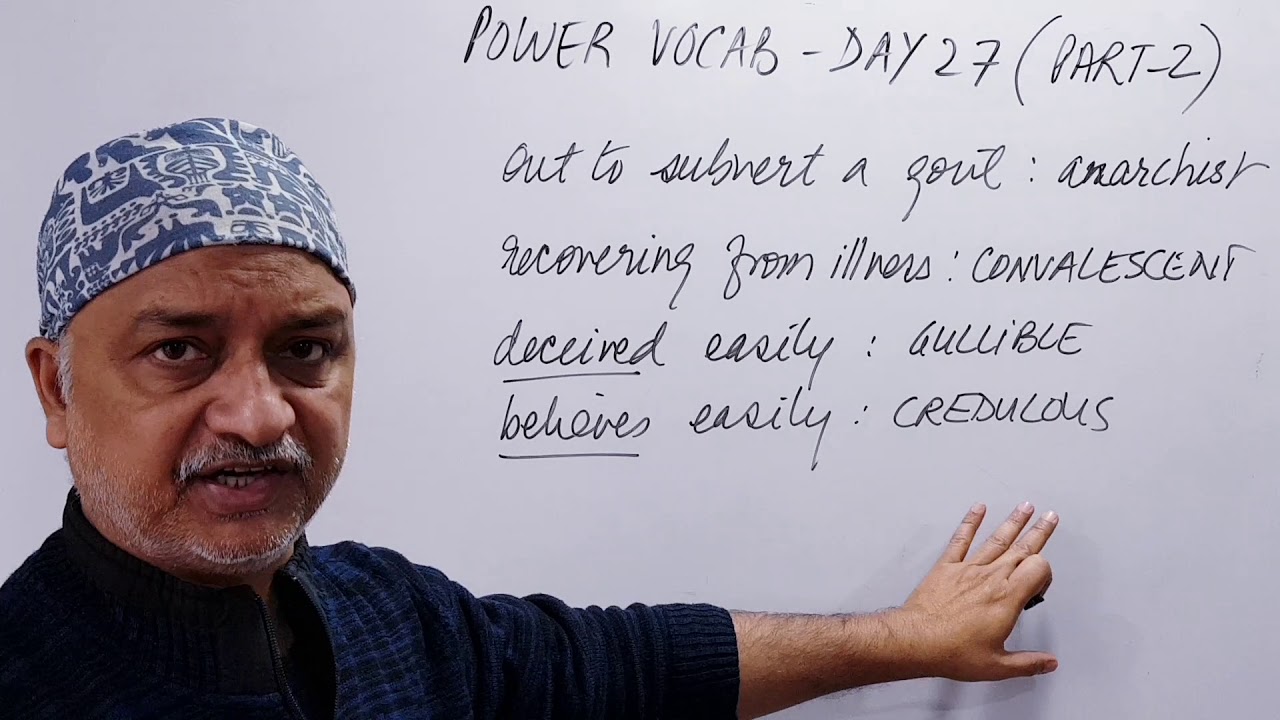 POWER VOCAB - DAY 27 (PART-2)
out to subvert a govt : anarchist
recovering from illness : CONVALESCENT
deceived easily : GULLIBLE
believes easily : CREDULOUS